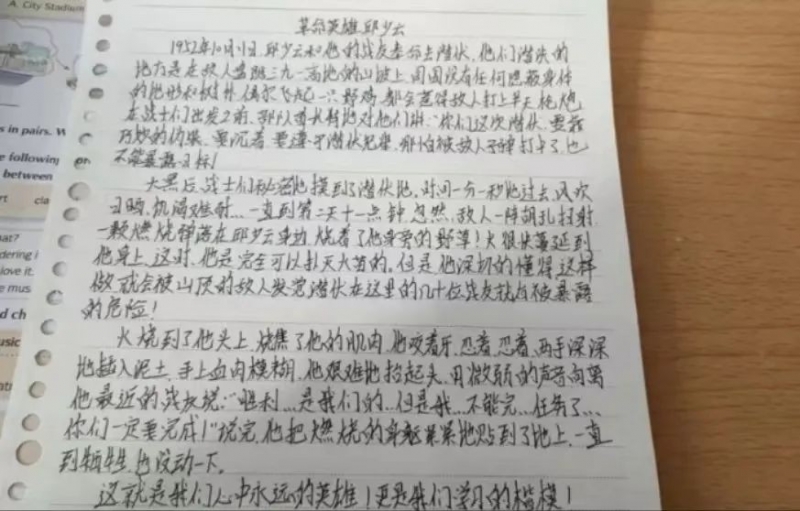 A. City Stadium
革命英雄邱少云
1952年10月11日,邱少云和他的战友奉命去潜伏,他们潜伏的
地方是在敌人盘踞三九一高地的山坡上,周围没有任何隐蔽身体
的地形和树林,偶尔飞起一只野鸡,都会惹得敌人打上半天枪炮
在战士们出发之前,部队首长特地对他们讲:"你们这次潜伏,要靠
巧妙的伪装,要沉着,要遵守潜伏纪律,哪怕被敌人子弹打中了,也
不能暴露目标!
天黑后,战士们秘密地摸到了潜伏地,时间一分一秒地过去,风吹
日晒,饥渴难耐…一直到第二天十一点钟,忽然,敌人一阵胡乱扫射
一颗燃烧弹落在邱少云身边,烧着了他身旁的野草!火很快蔓延到
他身上,这时,他是完全可以扑灭火苗的。但是他深切的懂得,这样
做就会被山顶的敌人发觉潜伏在这里的几十位战友就有被暴露
的危险!
火烧到了他头上,烧焦了他的肌肉,他咬着牙,忍着,忍着,两手深深
地插入泥土,手上血肉模糊,他艰难地抬起头,用微弱的声音向离
他最近的战友说:"胜利…是我们的…但是我…不能完…任务了…
你们一定要完成!"说完,他把燃烧的身躯紧紧地贴到了地上,一直
到牺牲,也没动一下。
这就是我们心中永远的英雄!更是我们学习的楷模!
in pairs. W
following
between
rt
cla
hat?
dering i
love it.
e mus
d ch
usic